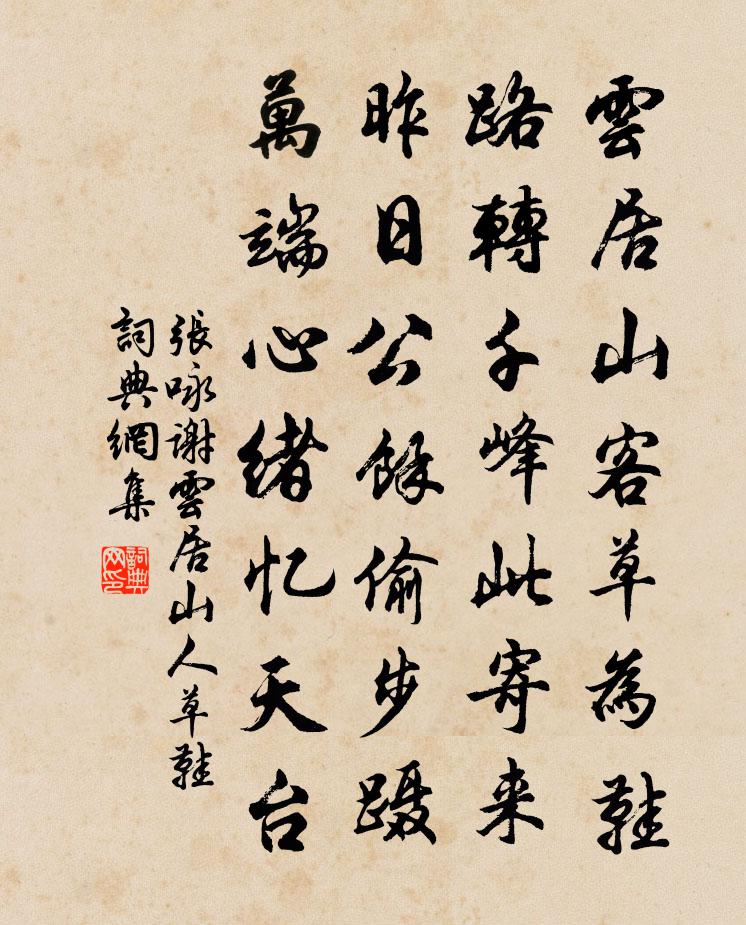 雲居山客草為鞋
路轉千峰此寄来
昨日公餘偷步蹑
萬端心緒忆天台
張咏謝雲居山人草鞋
詞典網集
詞典网印